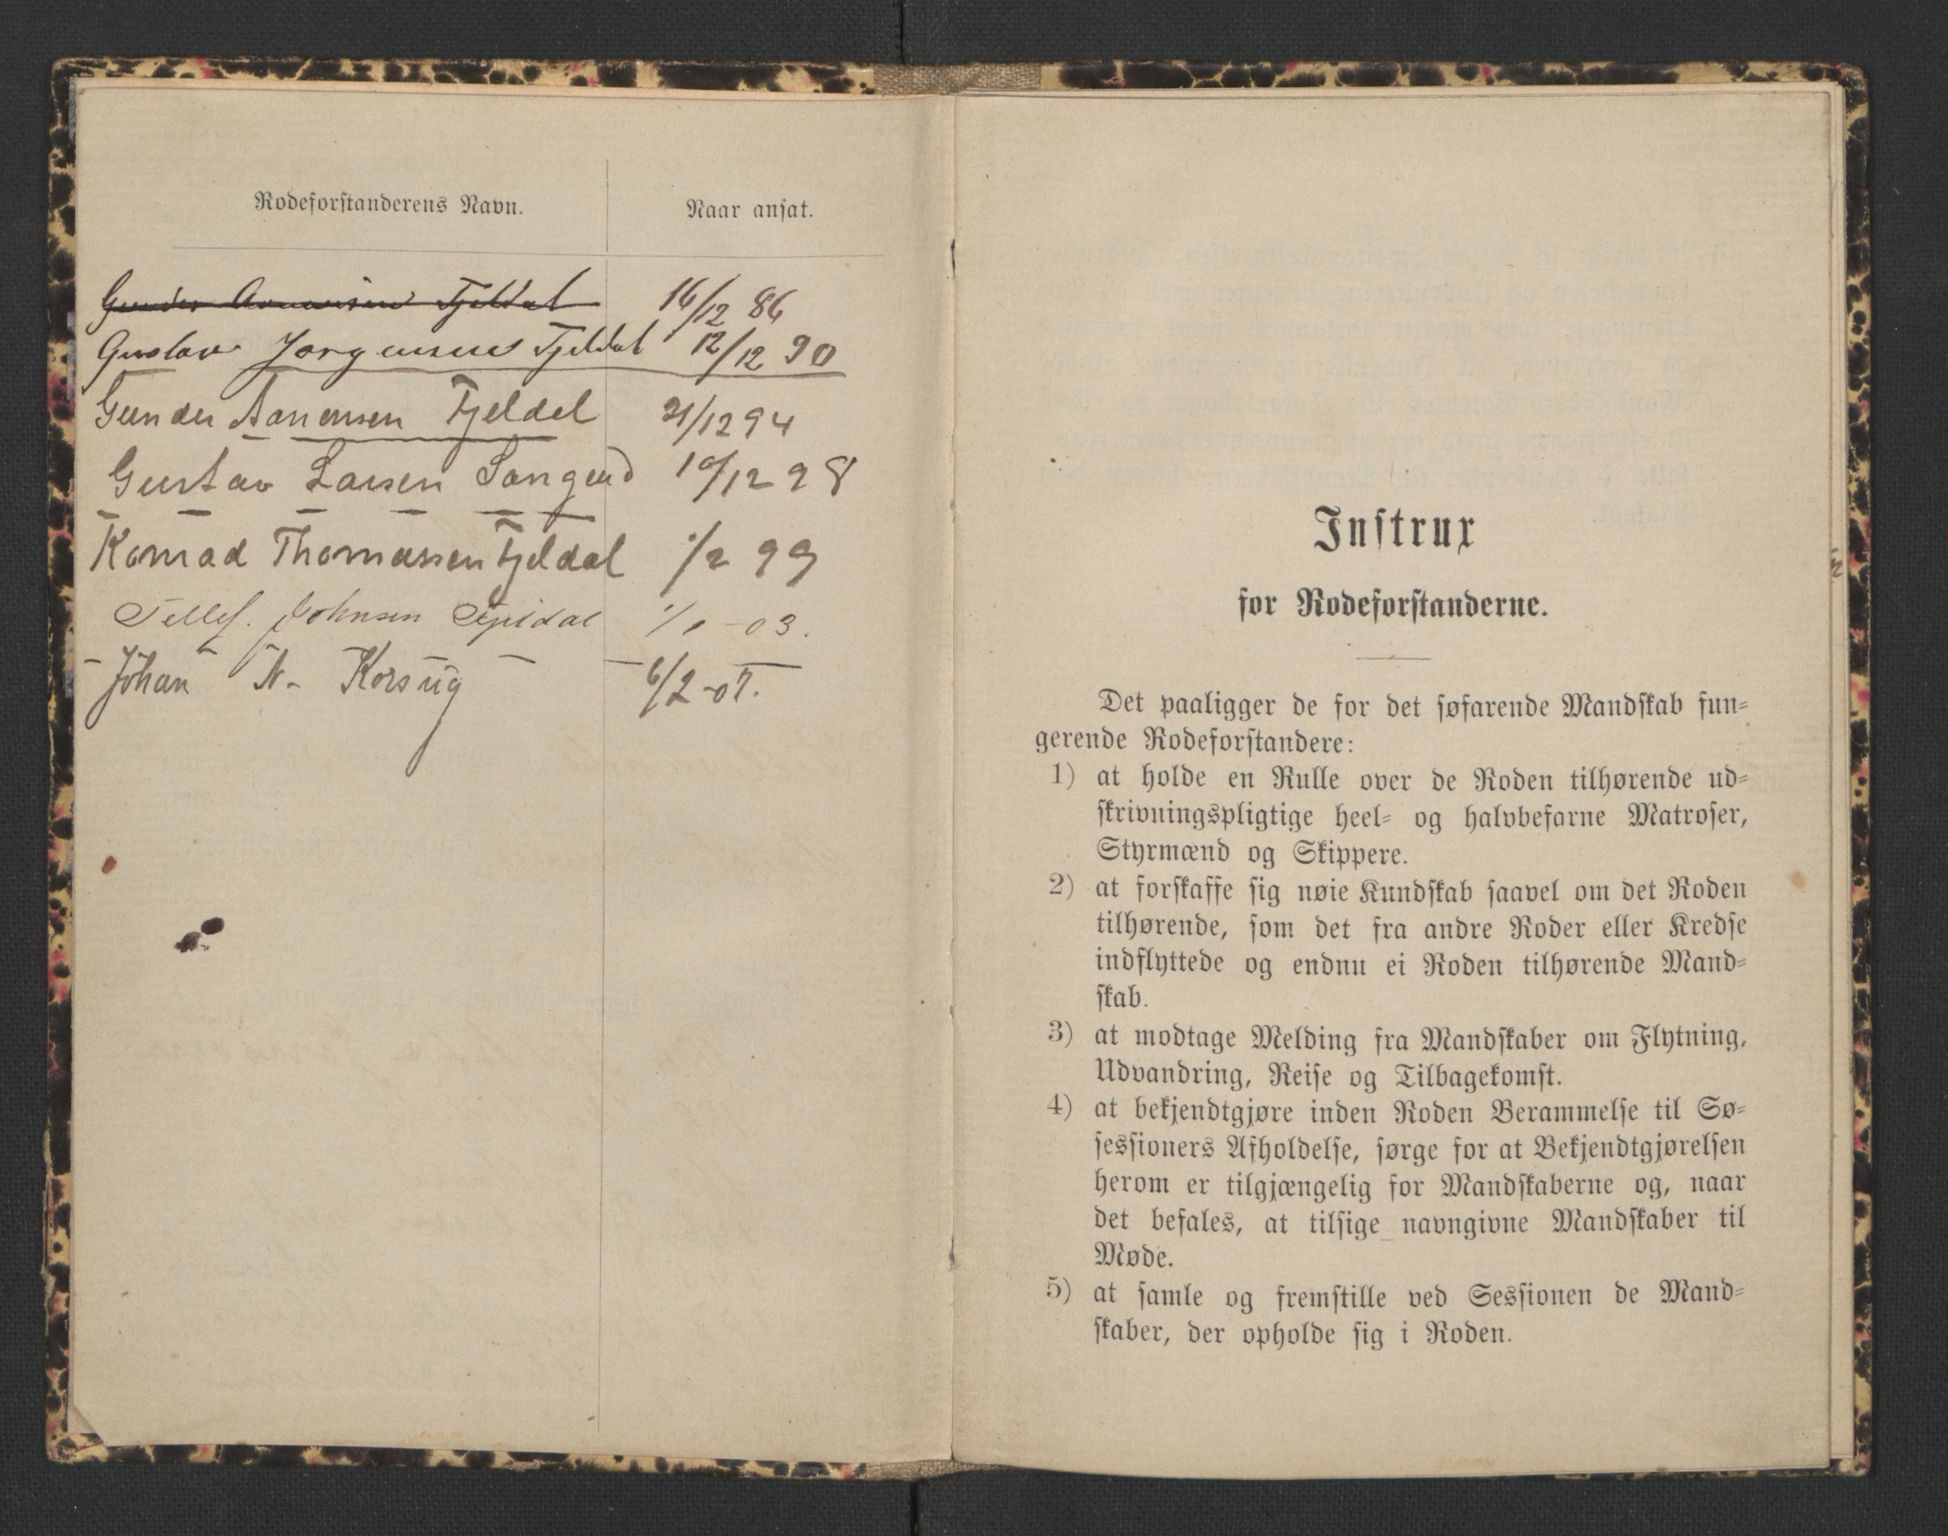 Rodeforstanderens Navn. Naar ansat.
Gunder Aanensen Fjeldal 16/12 86
Gustav Jorgensen Fjeldal 12/12 90
Gunder Aanensen Fjeldal 21/12 94
Gustav Larsen Songend 10/12 98
Konrad Thomassen Fjeldal 1/2 99
Tellef. Johnsen Fjeldal 1/1 - 03.
Johan N. Korsvig 6/2 - 07.
Instrux
for Rodeforstanderne.
Det paaligger de for det søfarende Mandskab fun-
gerende Rodeforstandere:
1) at holde en Rulle over de Roden tilhørende ud-
skrivningspligtige heel- og halvbefarne Matroser,
Styrmænd og Skippere.
2) at forskaffe sig nøie Kundskab saavel om det Roden
tilhørende, som det fra andre Roder eller Kredse
indflyttede og endnu ei Roden tilhørende Mand-
skab.
3) at modtage Melding fra Mandskaber om Flytning,
Udvandring, Reise og Tilbagekomst.
4) at bekjendtgjøre inden Roden Berammelse til Sø-
sessioners Afholdelse, sørge for at Bekjendtgjørelsen
herom er tilgjængelig for Mandskaberne og, naar
det befales, at tilsige navngivne Mandskaber til
Møde.
5) at samle og fremstille ved Sessionen de Mand-
skaber, der opholde sig i Roden.